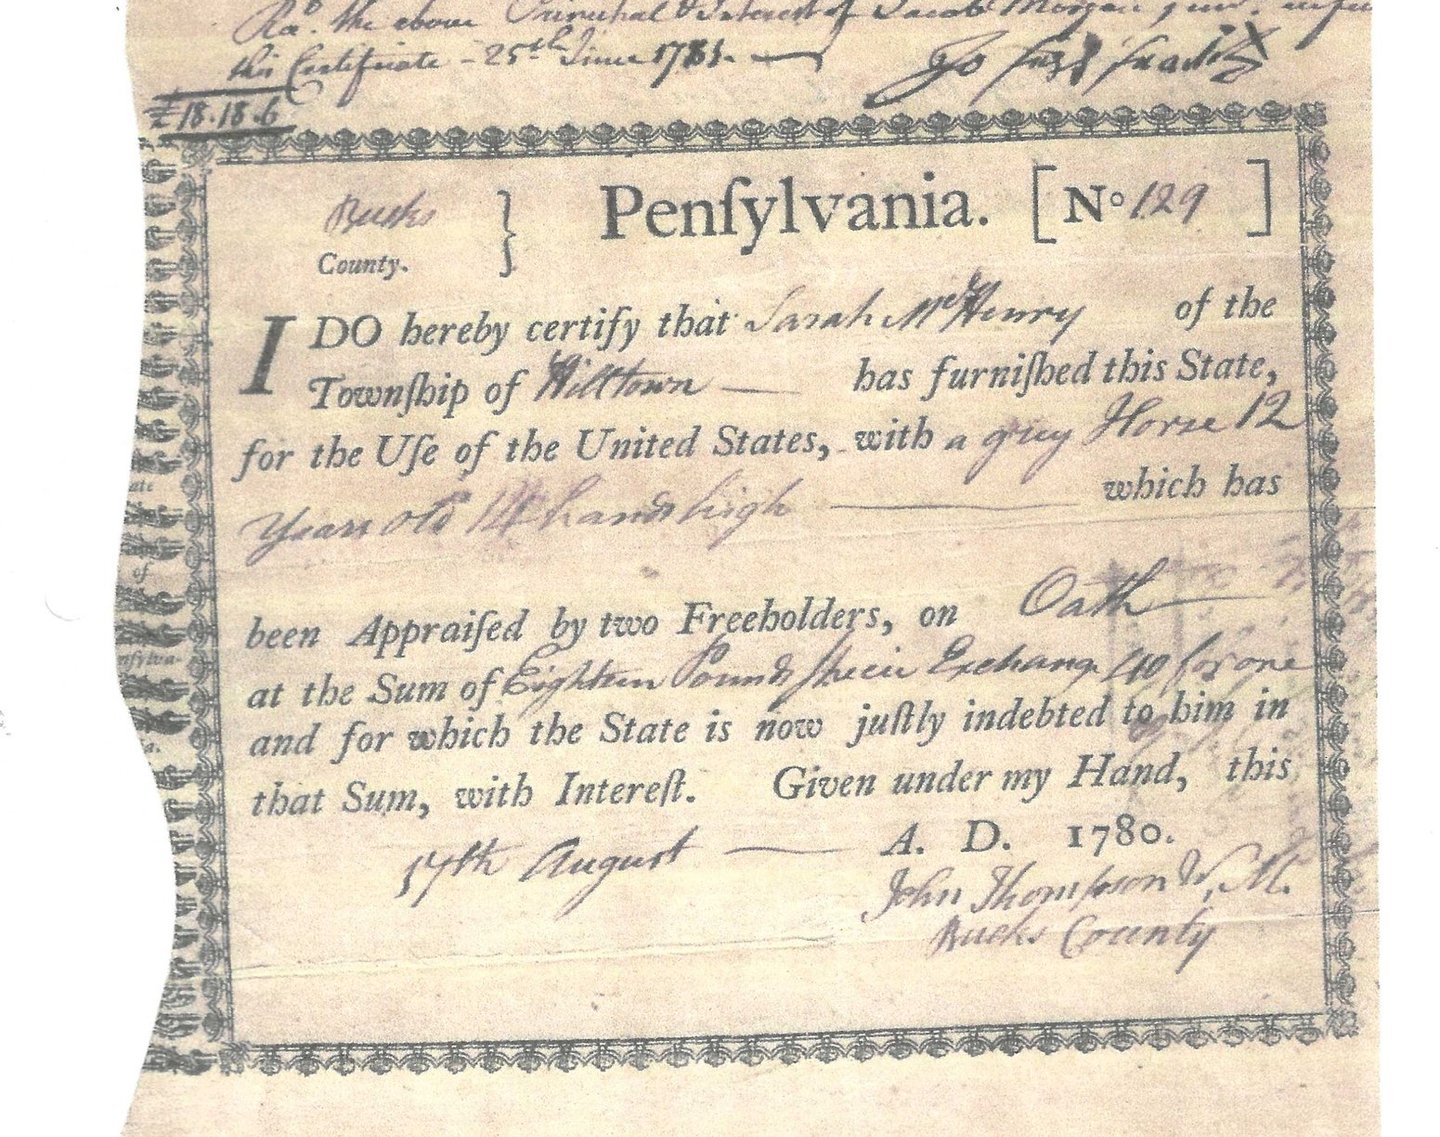 Rd. the above Principal & Interest of Jacob Morgan Junr.
this Certificate - 25th June 1781. —
£18.18.6
Bucks
County.
} Penſylvania. [No 129 ]
I DO hereby certify that Sarah McHenry of the
Townſhip of Hilltown — has furniſhed this State,
for the Uſe of the United States, with a grey Horse 12
Years old 14 hands high — which has
been Appraiſed by two Freeholders, on Oath —
at the Sum of Eighteen Pounds Specie Exchange 40 for one
and for which the State is now juſtly indebted to him in
that Sum, with Intereſt. Given under my Hand, this
17th August — A. D. 1780.
John Thompson W, M.
Bucks County
of